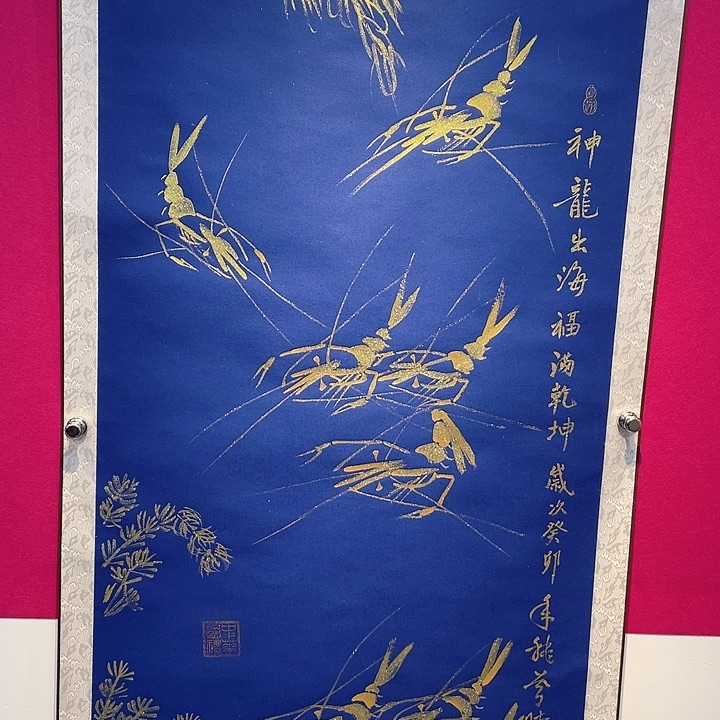 神龍出海 福满乾坤 歲次癸卯年秫